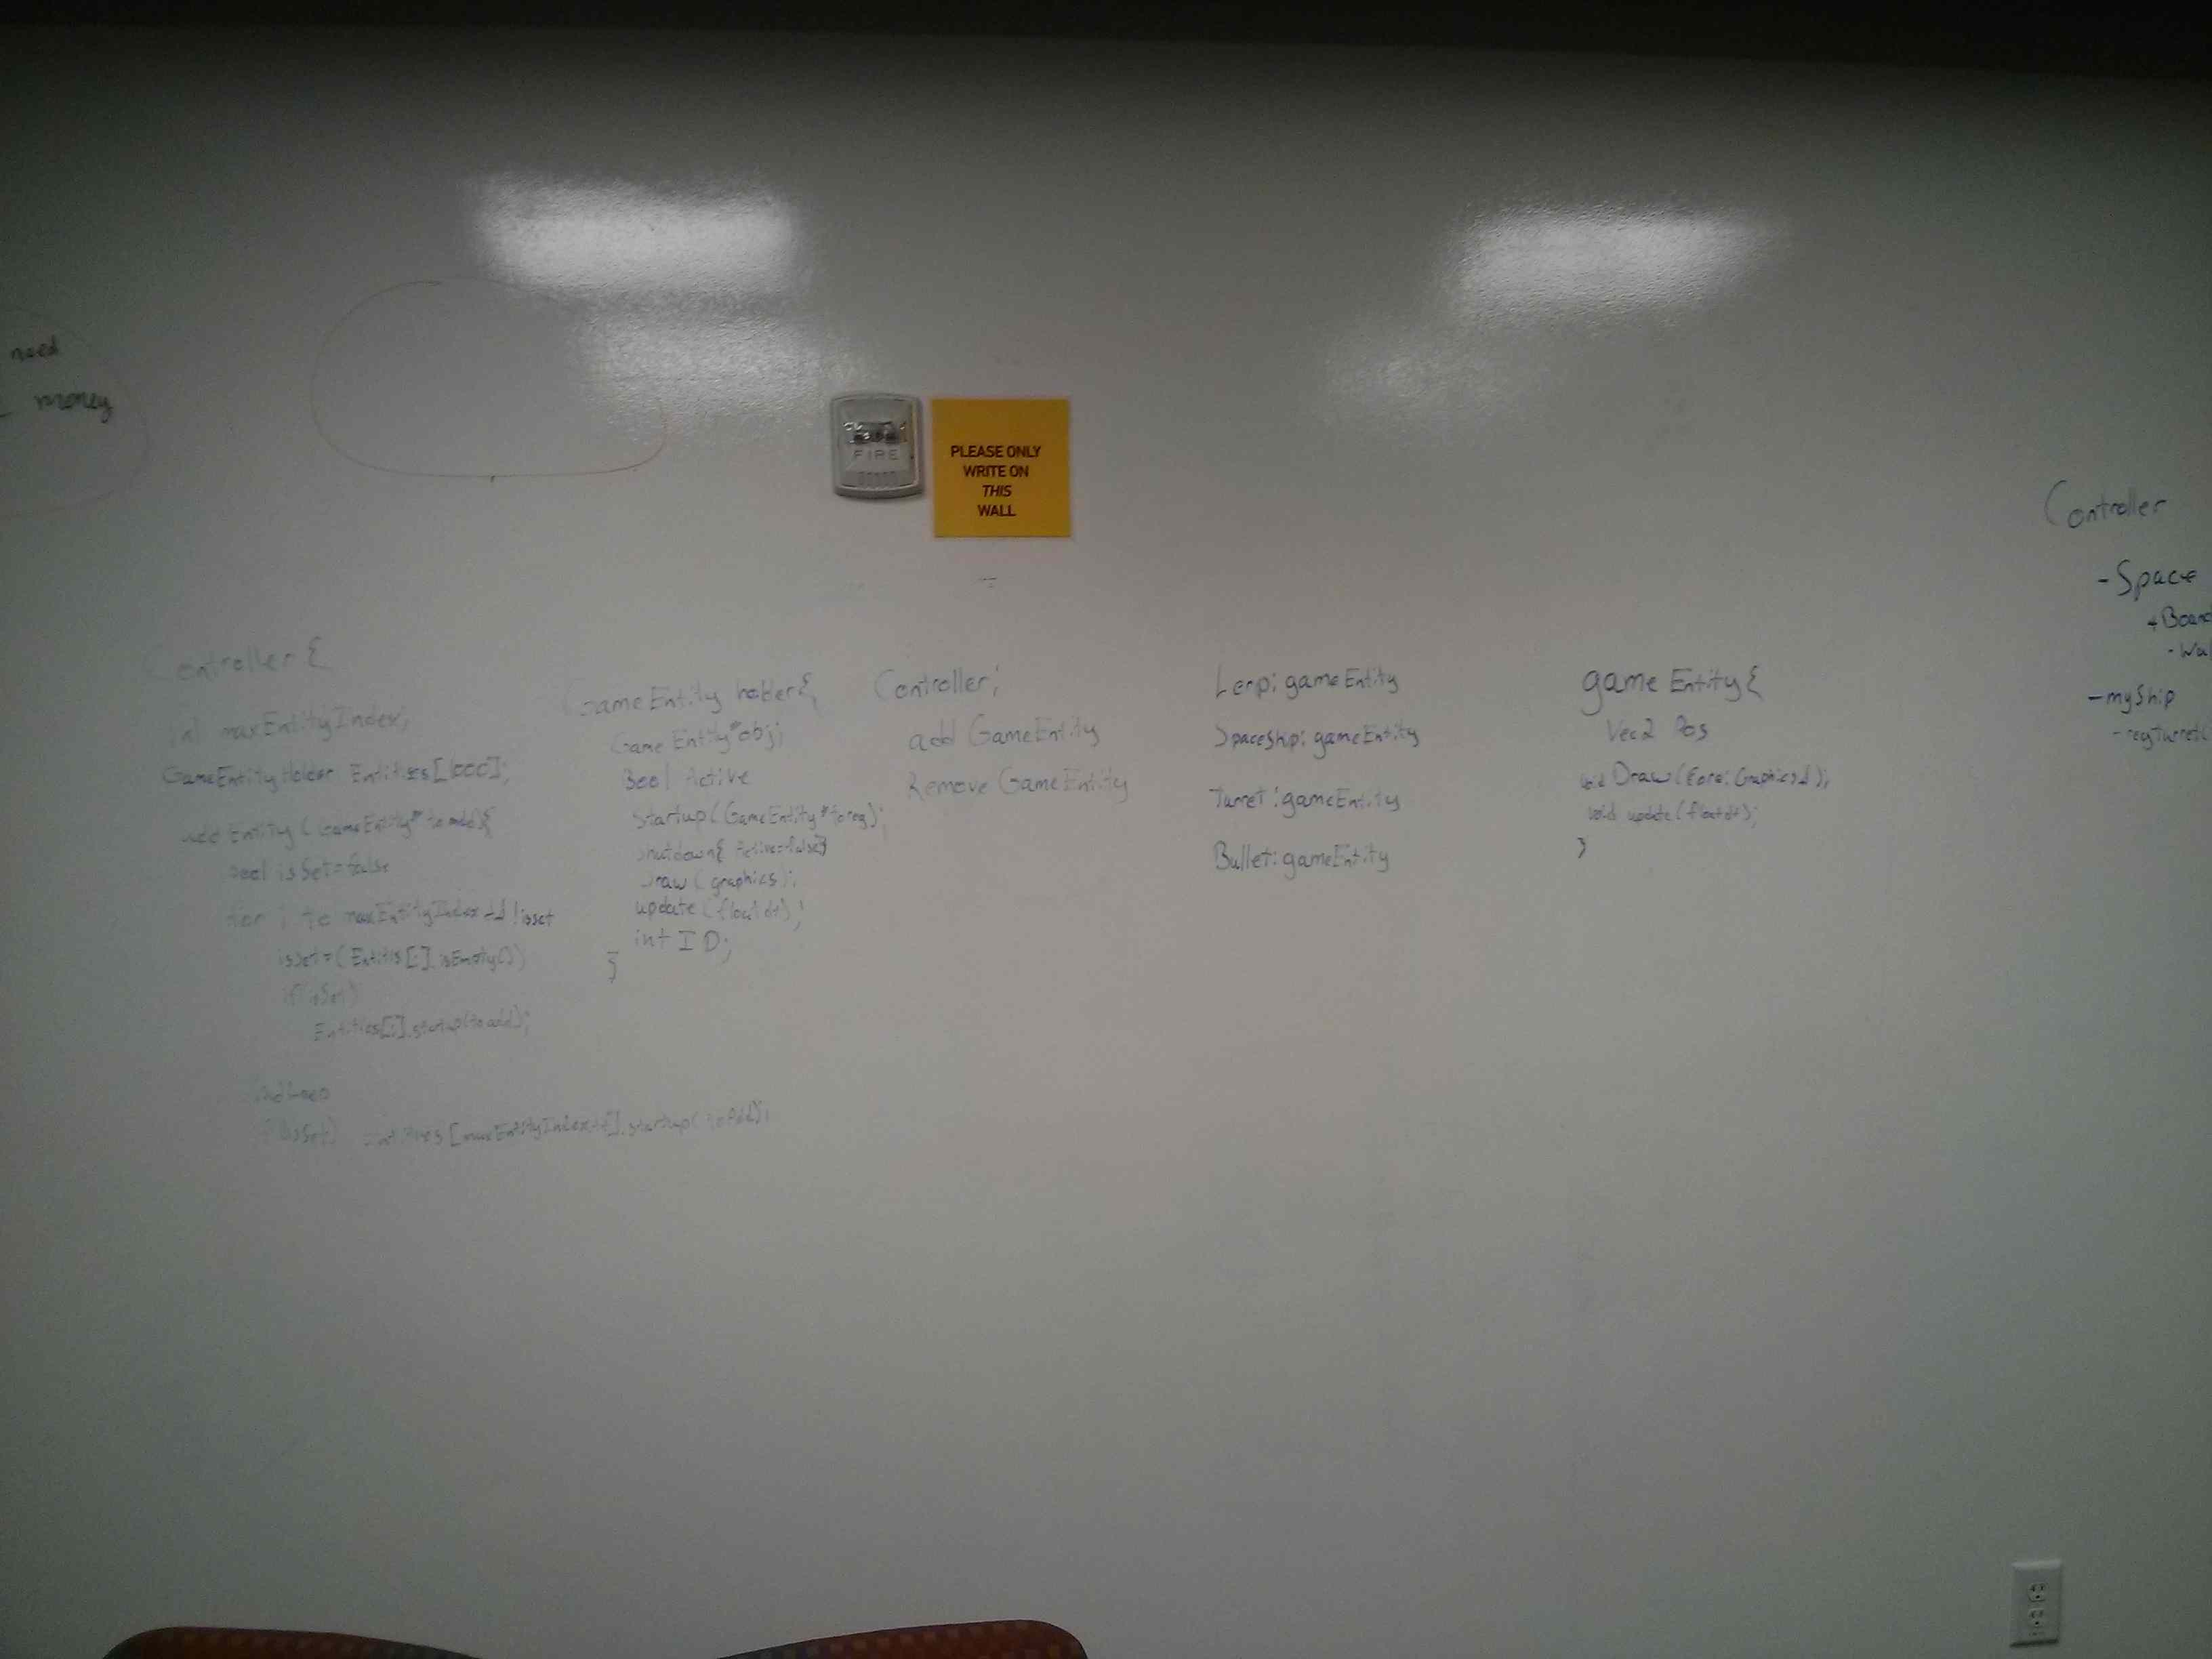 need
money
FIRE
PLEASE ONLY
WRITE ON
THIS
WALL
Controller {
int maxEntityIndex;
GameEntityHolder Entities[1000];
add Entity (GameEntity* to add){
bool isSet=false
for i to maxEntityIndex && !isset
isSet=(Entitis[i].isEmpty())
if(isSet)
Entities[i].startup(to add);
if(!isSet) Entities[maxEntityIndex++].startup(toAdd);
GameEntity holder{
Game Entity*obj;
Bool Active
Startup(GameEntity*toreg);
shutdown{ Active=false}
Draw (graphics);
update (float dt);
int ID;
}
Controller:
add GameEntity
Remove GameEntity
Lerp: gameEntity
Spaceship: gameEntity
Turret: gameEntity
Bullet: gameEntity
game Entity{
Vec2 Pos
void Draw (Core::Graphics&);
void update (float dt);
}
Controller
-Space
-myShip